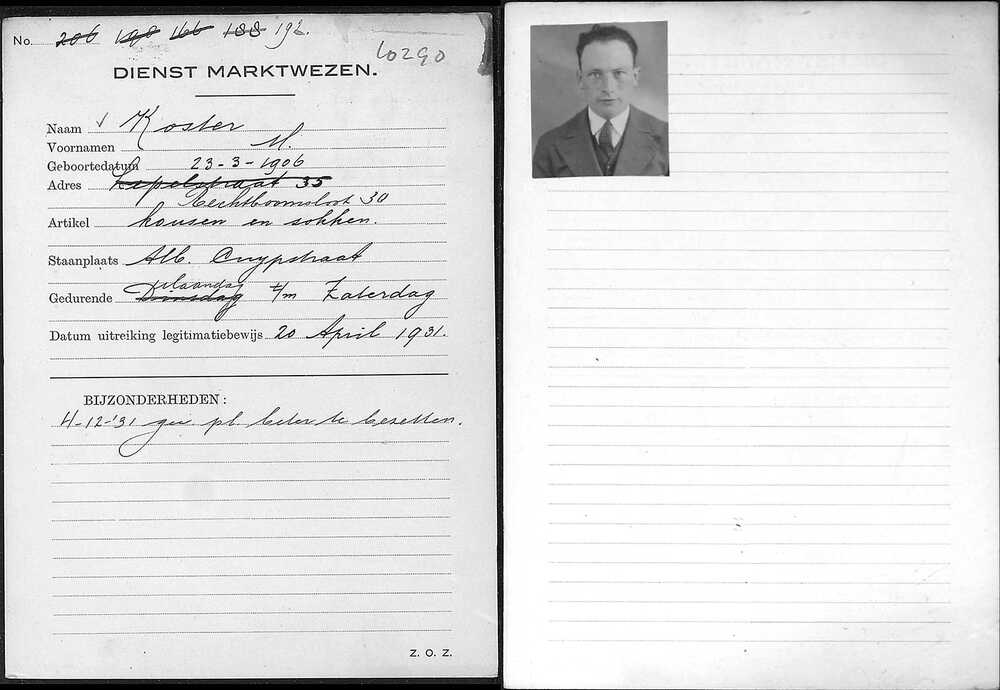 No. 206 198 166 188 192.
60290
DIENST MARKTWEZEN.
Naam Koster
Voornamen M.
Geboortedatum 23-3-1906
Adres Lepelstraat 35
Rechtboomsloot 30
Artikel kousen en sokken.
Staanplaats Alb. Cuypstraat
Maandag
Gedurende Dinsdag t/m Zaterdag
Datum uitreiking legitimatiebewijs 20 April 1931.
BIJZONDERHEDEN:
4-12-'31 gew. pl. beter te bezetten.
Z. O. Z.